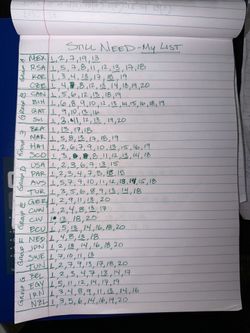 STILL NEED - MY LIST
GROUP A
MEX 1, 2, 7, 19, 13
RSA 1, 5, 7, 8, 11, 12, 13, 17, 18
KOR 1, 3, 4, 13, 17, 19
CZE 1, 4, 8, 12, 13, 14, 18, 19, 20
GROUP B
CAN 1, 5, 6, 12, 13, 18, 19
BIH 1, 6, 8, 9, 10, 12, 13, 14, 15, 16, 18, 19
QAT 1, 9, 10, 13, 16
SUI 1, 12, 13, 19, 20
BRA 1, 13, 17, 18
MAR 1, 5, 8, 13, 17, 18, 19
HAI 1, 2, 6, 7, 9, 10, 13, 15, 16, 19
SCO 1, 3, 8, 11, 12, 13, 14, 18
GROUP D
USA 1, 2, 3, 6, 7, 13, 15
PAR 1, 2, 3, 4, 7, 8, 13, 15
AUS 1, 5, 7, 9, 10, 11, 12, 13, 15, 18
TUR 1, 3, 5, 6, 8, 9, 13, 14, 18
GROUP E
GER 1, 2, 9, 11, 13, 20
CUW 1, 2, 4, 8, 13, 17
CIV 13, 18, 20
ECU 1, 5, 13, 14, 16, 18, 20
GROUP F
NED 1, 4, 8, 13, 18
JPN 1, 2, 13, 14, 16, 18, 20
SWE 1, 7, 10, 11, 13
TUN 1, 2, 7, 9, 13, 17, 18, 20
GROUP G
BEL 1, 2, 3, 4, 7, 13, 14, 17
EGY 1, 5, 11, 12, 14, 17, 19
IRN 1, 3, 4, 8, 9, 11, 13, 14, 16
NZL 1, 3, 5, 6, 14, 16, 19, 20